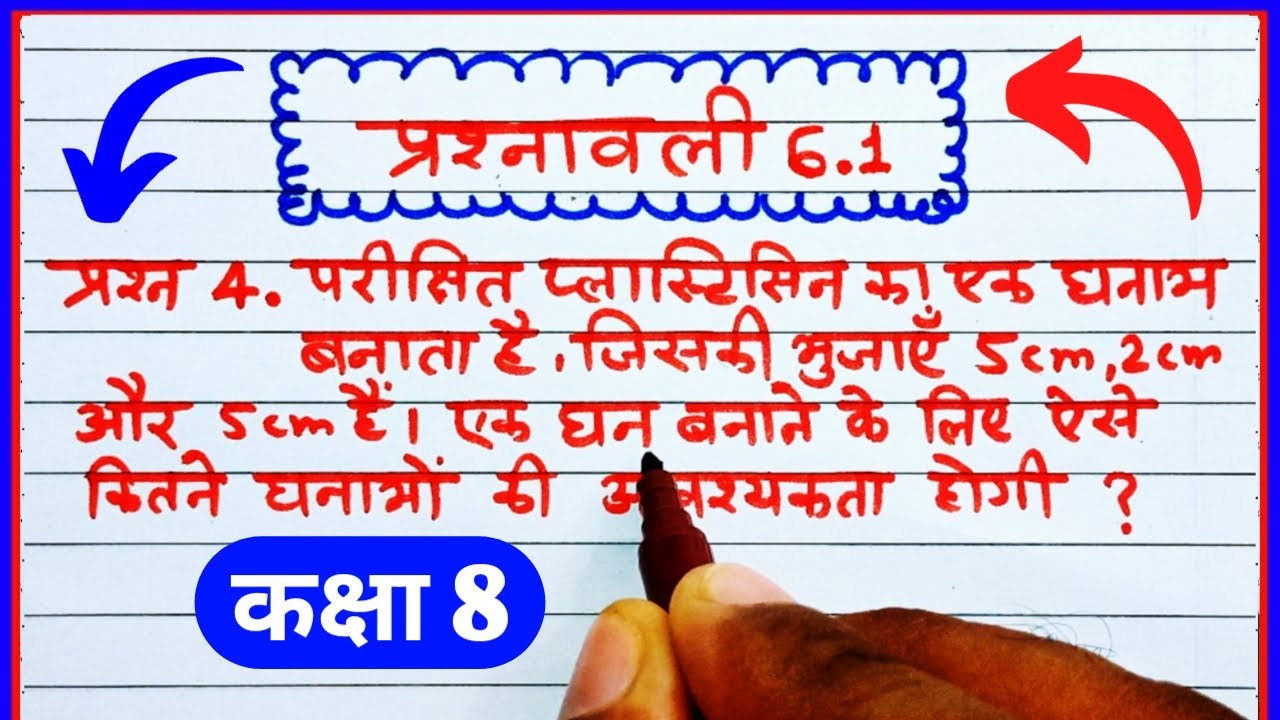 प्रश्नावली 6.1
प्रश्न 4. परीक्षित प्लास्टिसिन का एक घनाभ
बनाता है, जिसकी भुजाएँ 5cm, 2cm
और 5cm हैं। एक घन बनाने के लिए ऐसे
कितने घनाभों की आवश्यकता होगी ?
कक्षा 8